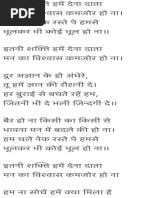 इतनी शक्ति हमें देना दाता
मन का विश्वास कमजोर हो ना।
हम चले नेक रस्ते पे हमसे
भूलकर भी कोई भूल हो ना।।
इतनी शक्ति हमें देना दाता
मन का विश्वास कमजोर हो ना।
दूर अज्ञान के हो अंधेरे,
तू हमें ज्ञान की रौशनी दे।
हर बुराई से बचते रहें हम,
जितनी भी दे भली ज़िन्दगी दे।।
बैर हो ना किसी का किसी से
भावना मन में बदले की हो ना।
हम चले नेक रस्ते पे हमसे
भूलकर भी कोई भूल हो ना।।
इतनी शक्ति हमें देना दाता
मन का विश्वास कमजोर हो ना।
हम ना सोचें हमें क्या मिला है